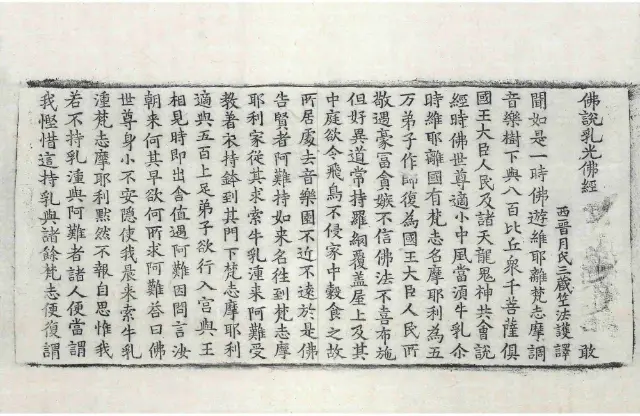 佛說乳光佛經 敢
西晉月氏三藏竺法護譯
聞如是一時佛遊維耶離梵志摩調
音樂樹下與八百比丘衆千菩薩俱
國王大臣人民及諸天龍鬼神共會說
經時佛世尊適小中風當須牛乳尒
時維耶離國有梵志名摩耶利為五
万弟子作師復為國王大臣人民所
敬遇豪富貪嫉不信佛法不喜布施
但好異道常持羅網覆蓋屋上及其
中庭欲令飛鳥不侵家中穀食之故
所居處去音樂園不近不遠於是佛
告賢者阿難持如來名往到梵志摩
耶利家從其求索牛乳湩來阿難受
教著衣持鉢到其門下梵志摩耶利
適與五百上足弟子欲行入宮與王
相見時即出舍值遇阿難因問言汝
朝來何其早欲何所求阿難荅曰佛
世尊身小不安隱使我晨來索牛乳
湩梵志摩耶利默然不報自思惟我
若不持乳湩與阿難者諸人便當謂
我慳惜適持乳與諸餘梵志便復謂